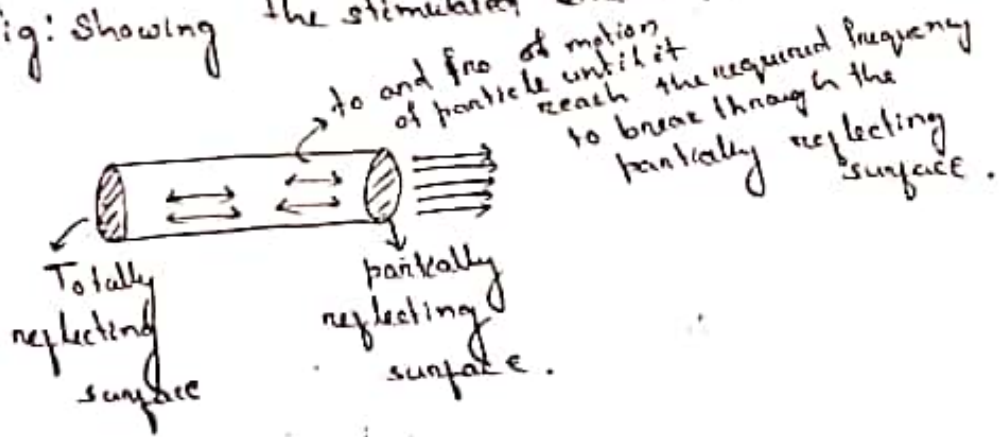 ig: Showing the stimulated
to and fro of motion
of particle until it
reach the required frequency
to break through the
partially reflecting
surface.
Totally
reflecting
surface
partially
reflecting
surface.